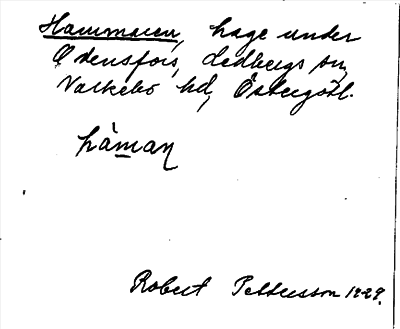 Hammaren, hage under
Odensfors, Ledbergs sn,
Valkebo hd, Östergötl.
hàmaɳ
Robert Pettersson 1929.